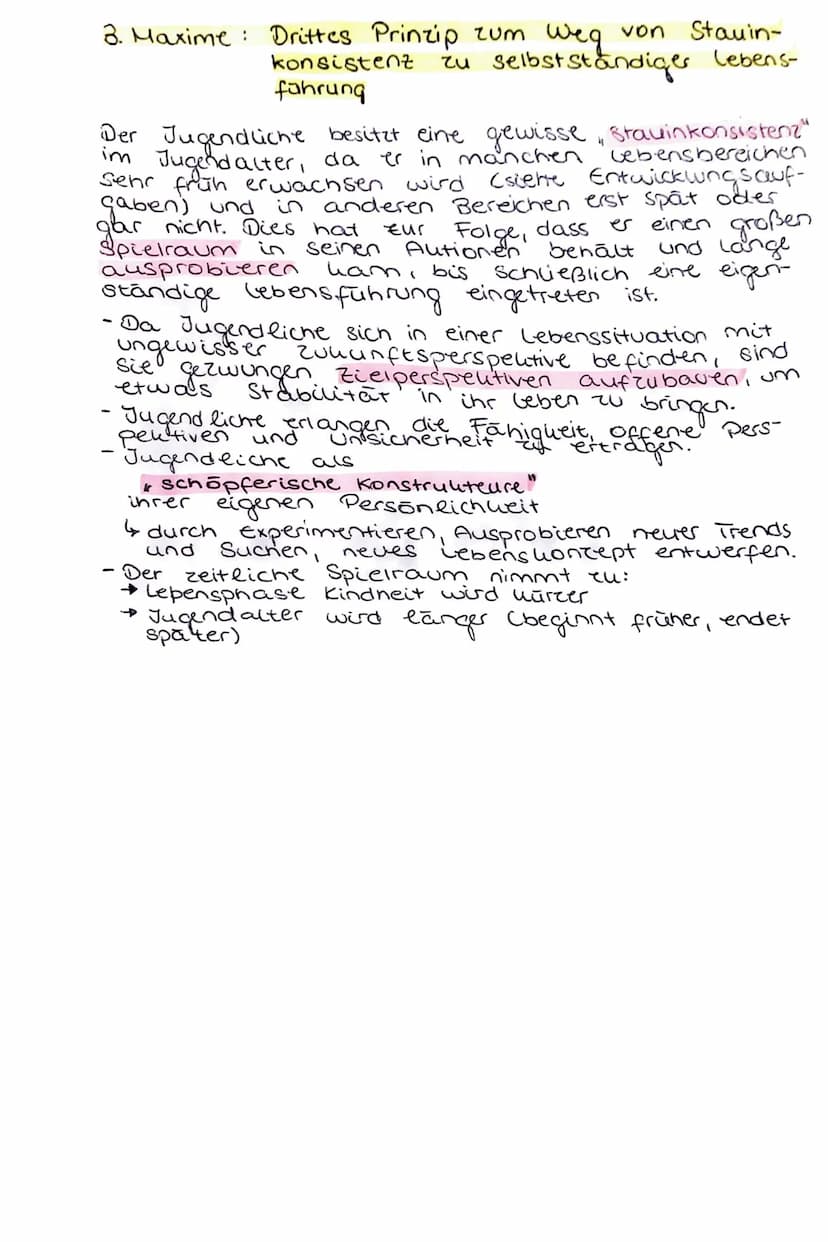 3. Maxime: Drittes Prinzip zum Weg von Stauin-
konsistenz zu selbstständiger Lebens-
führung
Der Jugendliche besitzt eine gewisse „Stauinkonsistenz"
im Jugendalter, da er in manchen Lebensbereichen
sehr früh erwachsen wird (siehe Entwicklungsauf-
gaben) und in anderen Bereichen erst spät oder
gar nicht. Dies hat zur Folge, dass er einen großen
Spielraum in seinen Aktionen behält und lange
ausprobieren kann, bis schließlich eine eigen-
ständige Lebensführung eingetreten ist.
- Da Jugendliche sich in einer Lebenssituation mit
ungewisser Zukunftsperspektive befinden, sind
sie gezwungen Zielperspektiven aufzubauen, um
etwas Stabilität in ihr Leben zu bringen.
- Jugendliche erlangen die Fähigkeit, offene Pers-
pektiven und Unsicherheit zu ertragen.
- Jugendliche als
„schöpferische Konstrukteure"
ihrer eigenen Persönlichkeit
↳ durch Experimentieren, Ausprobieren neuer Trends
und Suchen, neues Lebenskonzept entwerfen.
- Der zeitliche Spielraum nimmt zu:
→ Lebensphase Kindheit wird kürzer
→ Jugendalter wird länger (beginnt früher, endet
später)